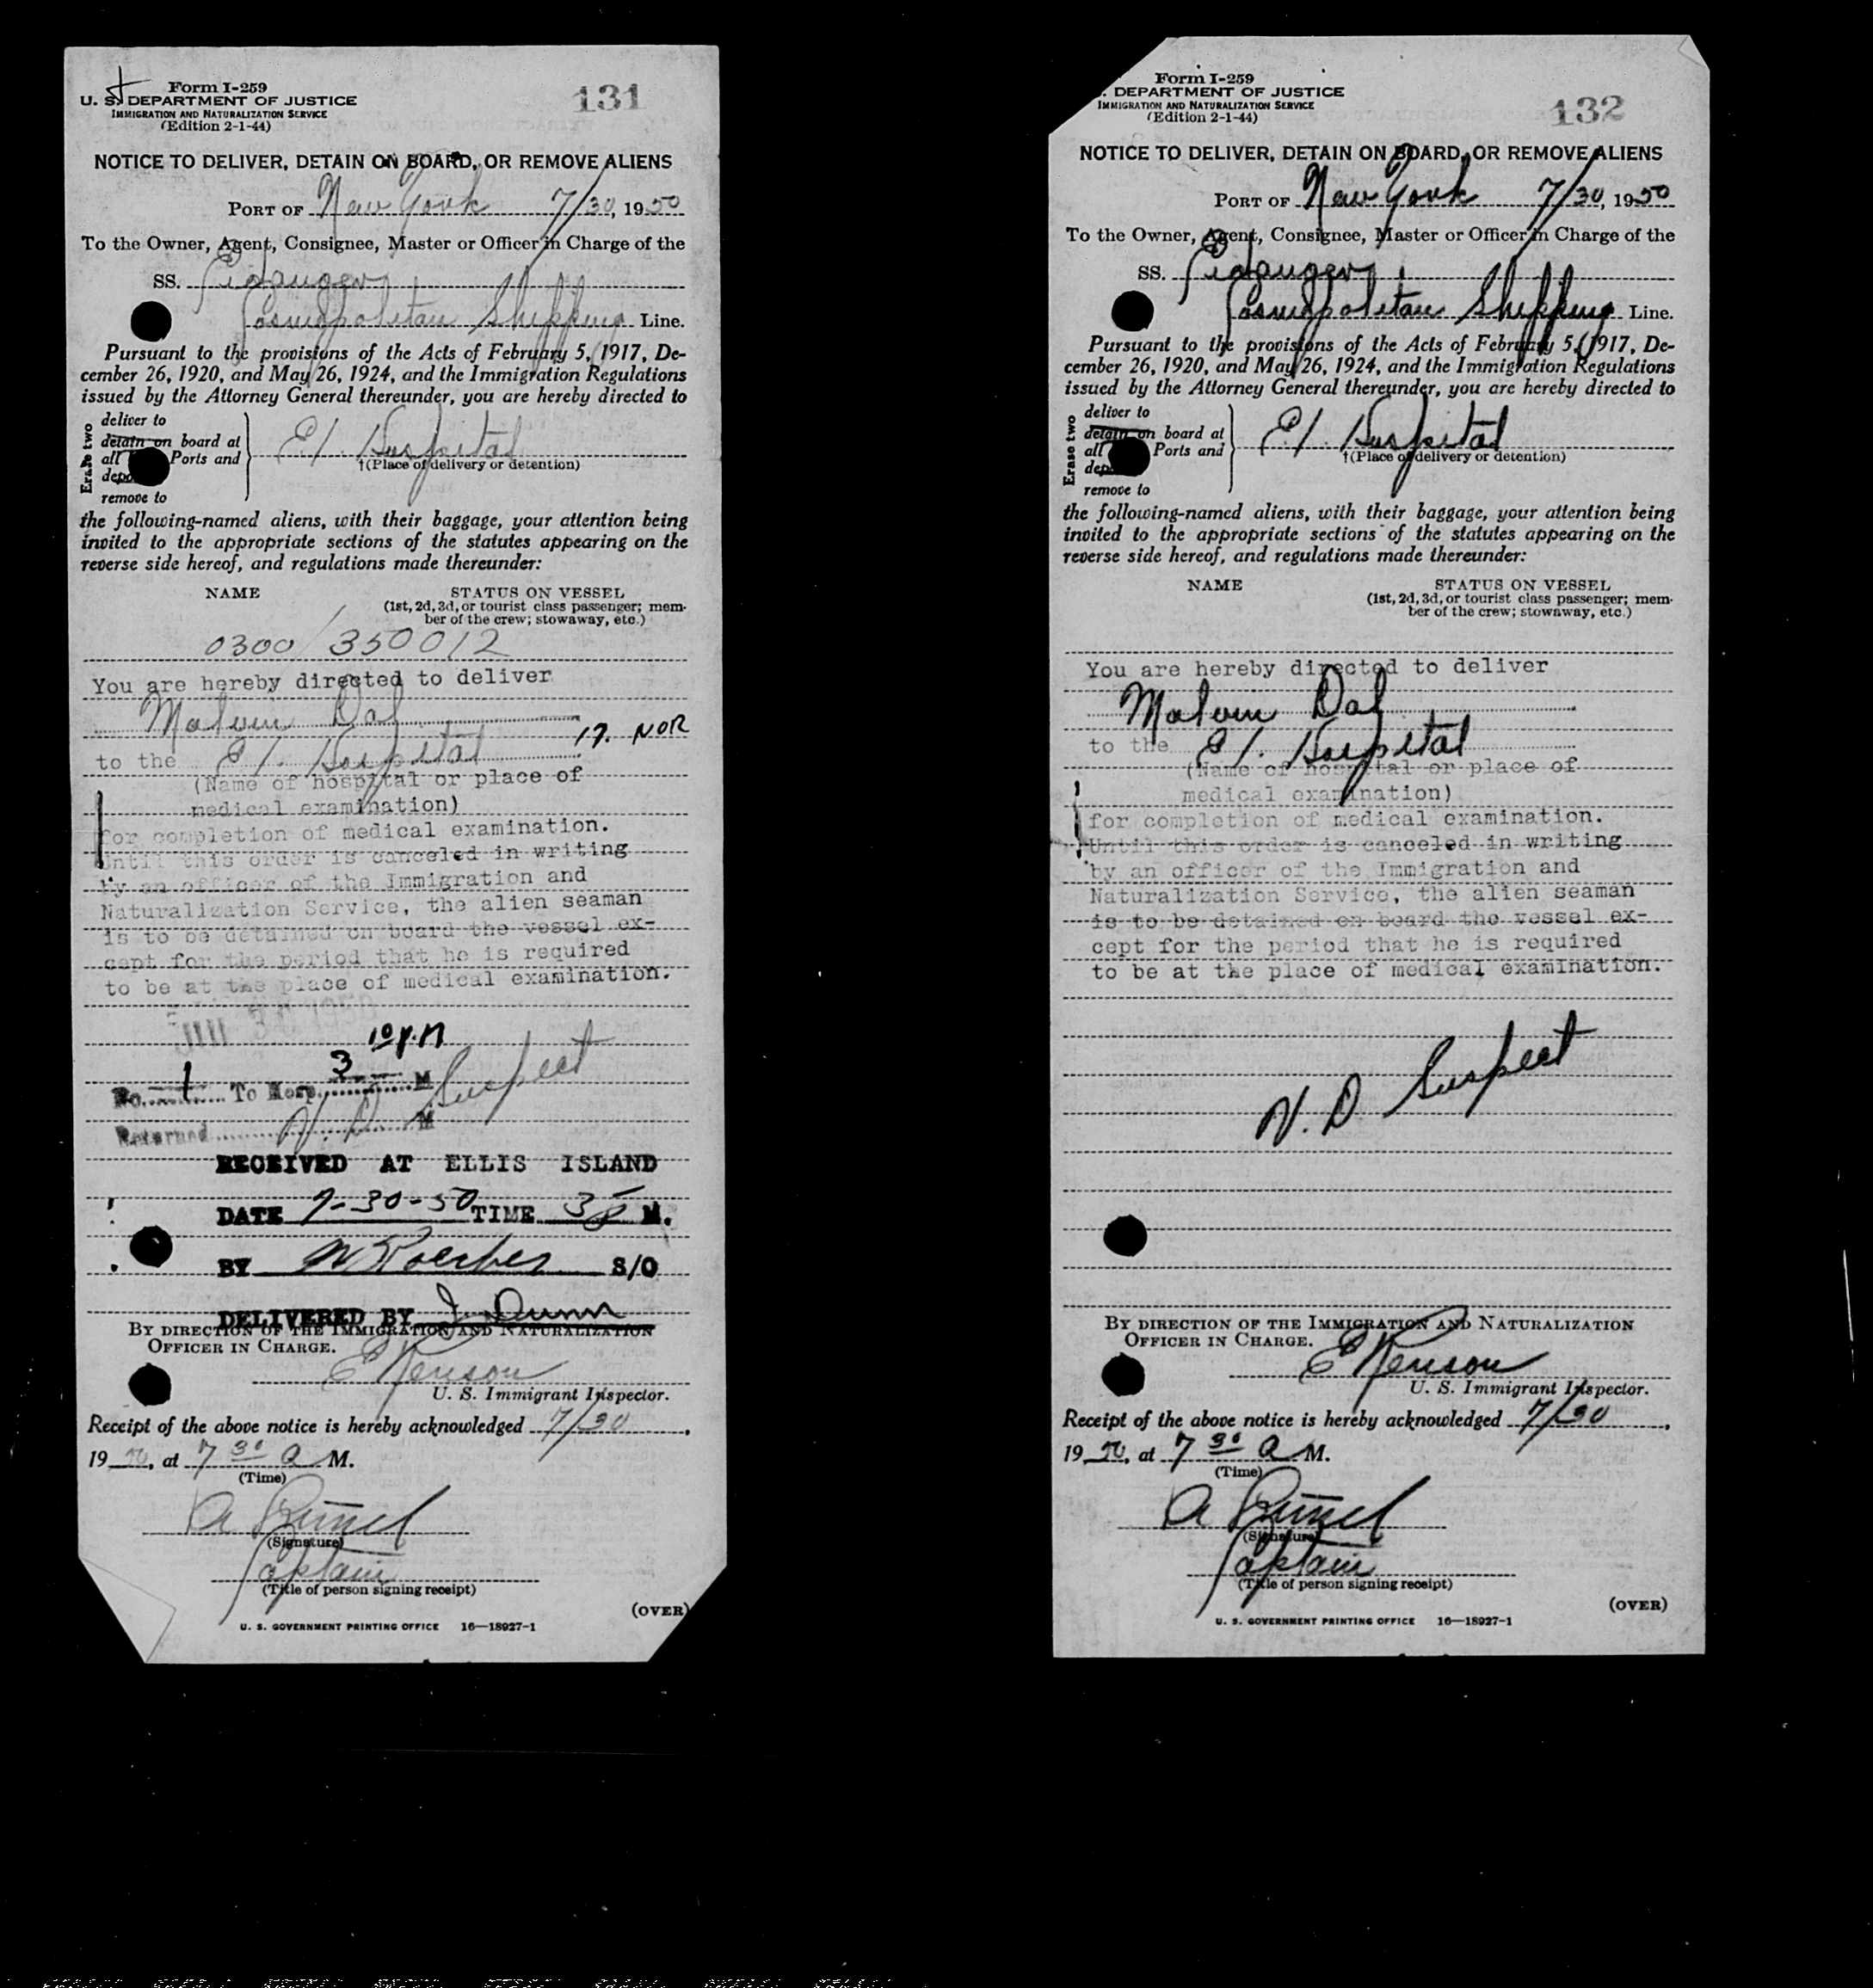 Form I-259
U. S. DEPARTMENT OF JUSTICE
IMMIGRATION AND NATURALIZATION SERVICE
(Edition 2-1-44)
131
NOTICE TO DELIVER, DETAIN ON BOARD, OR REMOVE ALIENS
PORT OF New York 7/30, 1950
To the Owner, Agent, Consignee, Master or Officer in Charge of the
SS. Eidanger
Cosmopolitan Shipping Line.
Pursuant to the provisions of the Acts of February 5, 1917, De-
cember 26, 1920, and May 26, 1924, and the Immigration Regulations
issued by the Attorney General thereunder, you are hereby directed to
Erase two
deliver to
detain on board at
all Ports and
remove to
E I. Hospital
†(Place of delivery or detention)
the following-named aliens, with their baggage, your attention being
invited to the appropriate sections of the statutes appearing on the
reverse side hereof, and regulations made thereunder:
NAME STATUS ON VESSEL
(1st, 2d, 3d, or tourist class passenger; mem-
ber of the crew; stowaway, etc.)
0300/350012
You are hereby directed to deliver
Malvin Dal
17. NOR
to the E I. Hospital
(Name of hospital or place of
medical examination)
for completion of medical examination.
Until this order is canceled in writing
by an officer of the Immigration and
Naturalization Service, the alien seaman
is to be detained on board the vessel ex-
cept for the period that he is required
to be at the place of medical examination.
3 10 P.M
No. 1 To Hosp. M
Returned M
V. D Suspect
RECEIVED AT ELLIS ISLAND
DATE 7-30-50 TIME M.
BY S/O
DELIVERED BY J. Dunn
BY DIRECTION OF THE IMMIGRATION AND NATURALIZATION
OFFICER IN CHARGE.
E Kenson
U. S. Immigrant Inspector.
Receipt of the above notice is hereby acknowledged 7/30,
1950, at 7 30 A M.
(Time)
(Signature)
Captain
(Title of person signing receipt)
(OVER)
U. S. GOVERNMENT PRINTING OFFICE 16—18927-1
Form I-259
. DEPARTMENT OF JUSTICE
IMMIGRATION AND NATURALIZATION SERVICE
(Edition 2-1-44)
132
NOTICE TO DELIVER, DETAIN ON BOARD, OR REMOVE ALIENS
PORT OF New York 7/30, 1950
To the Owner, Agent, Consignee, Master or Officer in Charge of the
SS. Eidanger
Cosmopolitan Shipping Line.
Pursuant to the provisions of the Acts of February 5, 1917, De-
cember 26, 1920, and May 26, 1924, and the Immigration Regulations
issued by the Attorney General thereunder, you are hereby directed to
Erase two
deliver to
detain on board at
all Ports and
remove to
E I. Hospital
†(Place of delivery or detention)
the following-named aliens, with their baggage, your attention being
invited to the appropriate sections of the statutes appearing on the
reverse side hereof, and regulations made thereunder:
NAME STATUS ON VESSEL
(1st, 2d, 3d, or tourist class passenger; mem-
ber of the crew; stowaway, etc.)
You are hereby directed to deliver
Malvin Dal
to the E I. Hospital
(Name of hospital or place of
medical examination)
for completion of medical examination.
Until this order is canceled in writing
by an officer of the Immigration and
Naturalization Service, the alien seaman
is to be detained on board the vessel ex-
cept for the period that he is required
to be at the place of medical examination.
V. D Suspect
BY DIRECTION OF THE IMMIGRATION AND NATURALIZATION
OFFICER IN CHARGE.
E Kenson
U. S. Immigrant Inspector.
Receipt of the above notice is hereby acknowledged 7/30,
1950, at 7 30 A M.
(Time)
(Signature)
Captain
(Title of person signing receipt)
(OVER)
U. S. GOVERNMENT PRINTING OFFICE 16—18927-1